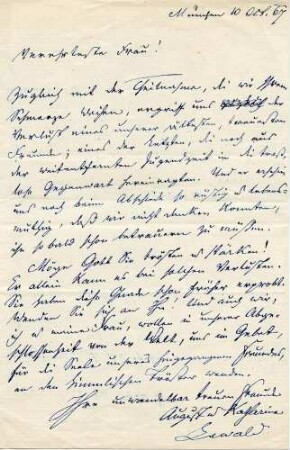 München 10 Oct. 67
Verehrteste Frau!
Zugleich mit der Theilnahme, die wir Ihrem
Schmerze weihen, ergreift uns der
Verlust eines unserer ältesten, treuesten
Freunde; eines der Letzten, die noch aus
der weitentfernten Jugendzeit in die trost-
lose Gegenwart hereinragten. Und er erschien
uns noch beim Abschiede so rüstig u lebens-
muthig, daß wir nicht denken konnten,
ihn so bald schon betrauern zu müssen.
Möge Gott Sie trösten u stärken!
Er allein kann es bei solchen Verlusten.
Sie haben diese Gnade schon früher erprobt.
Wenden Sie sich an Ihn! Und auch wir,
ich u meine Frau, wollen in unserer Abge-
schlossenheit von der Welt, uns im Gebet,
für die Seele unseres heimgegangenen Freundes,
an den himmlischen Tröster wenden.
Ihre unwandelbar treuen Freunde
August u Katharina
Lewald